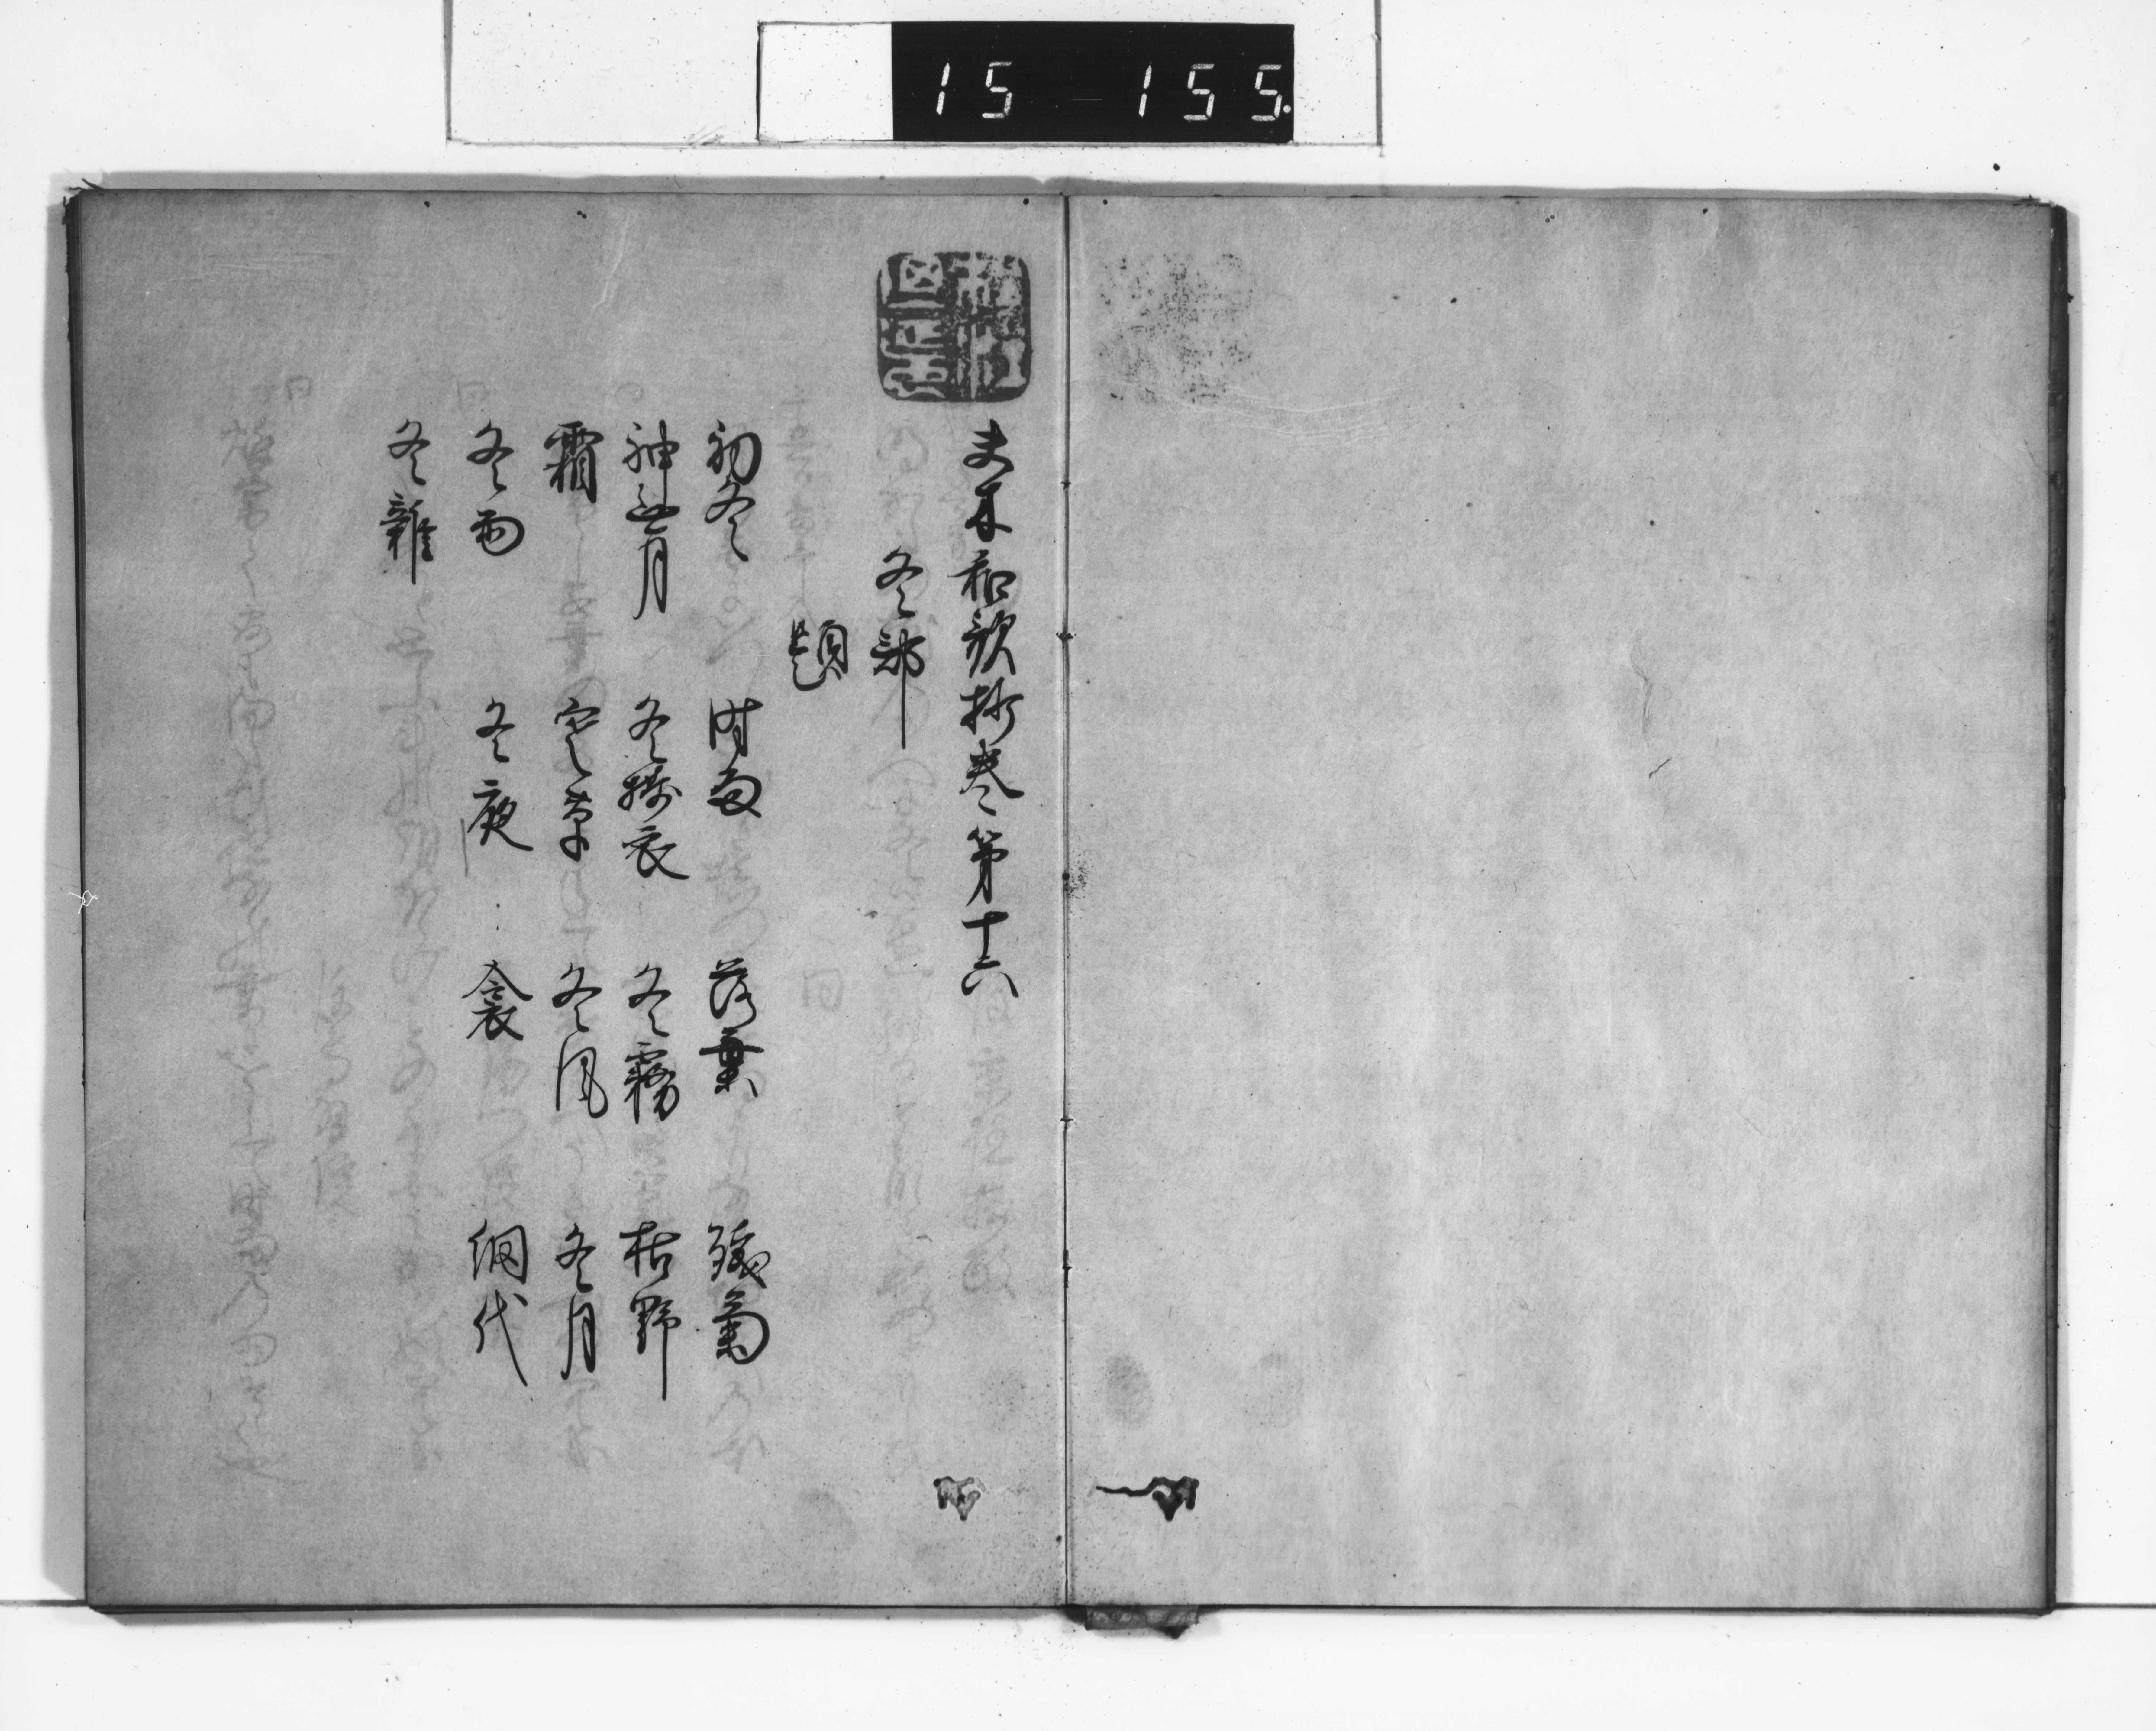 15 155
夫木和歌抄巻第十六
冬部
題
初冬 時雨 落葉 残菊
神無月 冬擣衣 冬霧 枯野
霜 寒草 冬風 冬月
冬雨 冬庭 衾 網代
冬雑